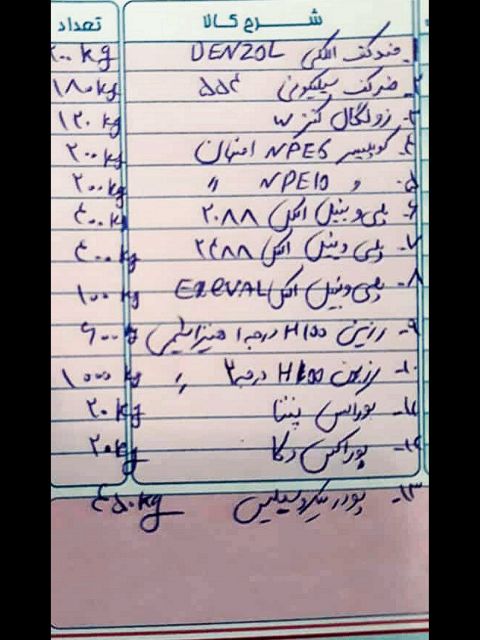 شرح کالا تعداد
۱- ضدکف الکلی DENZOL ۲۰۰ kg
۲- ضدکف سیلیکونی ۵۵۴ ۱۸۰ kg
۳- W ۱۲۰ kg
۴- NPE6 اصفهان ۲۰۰ kg
۵- و NPE10 〃 ۲۰۰ kg
۶- پلی وینیل الکل ۲۰۸۸ ۴۰۰ kg
۷- پلی وینیل الکل ۲۴۸۸ ۴۰۰ kg
۸- پلی وینیل الکل ۱۰۰ kg
۹- رزین H100 درجه ۱ ۶۰۰ kg
۱۰- رزین H100 درجه ۲ 〃 ۱۰۰۰ kg
۱۱- بوراکس پنتا ۲۰ kg
۱۲- بوراکس دکا ۲۰ kg
۱۳- پودر میکروسیلیس ۴۵۰ kg